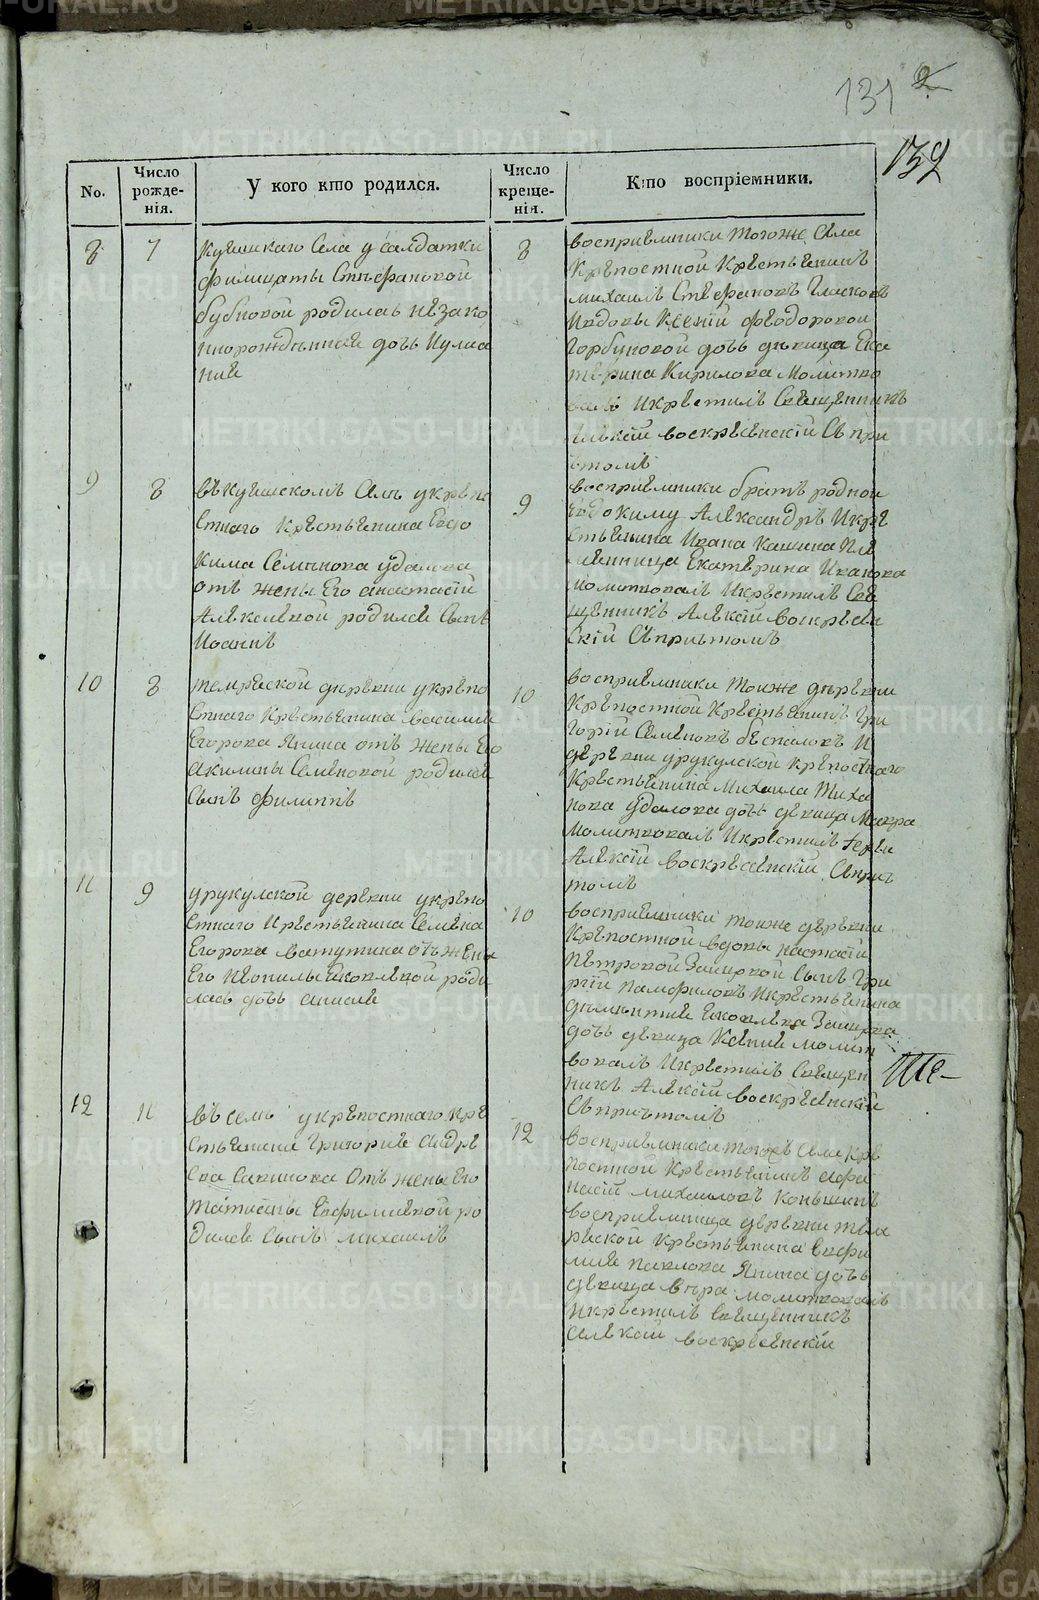 131 2
132
No.
Число рожде-нія.
У кого кто родился.
Число креще-нія.
Кто воспріемники.
8
7
Куяшскаго Села у салдатки
филицаты Стефановой
бубновой родилась незако
ннорожденная дочь Иулиа
ния
8
восприемники тогоже Села
Крепостной Крестьенинъ
михаилъ Стефановъ Гласковъ
Ивдовы Ксении феодоровой
горбуновой дочь девица Ека
терина Кирилова Молитво
валъ Икрестилъ Священникъ
Алексий воскресенский Съ при
чтомъ
9
8
въ Куяшскомъ Селе укрепо
стнаго Крестьенина Евдо
кима Семенова Удалова
отъ жены Его анастасии
Алексеевой родился Сынъ
Иоаннъ
9
восприемники братъ родной
Евдокиму Александръ Икре
стьенина Ивана Кашина Пле
менница Екатерина Иванова
молитвовалъ Икрестилъ Свя
щенникъ Алексий воскресен
ский Съ причтомъ
10
8
темряской деревни укрепо
стнаго Крестьенина василия
Егорова Япина отъ жены Его
акилины Семеновой родился
Сынъ филиппъ
10
восприемники тоиже деревни
Крепостной Крестьенинъ Гри
горий Семеновъ беспаловъ И
деревни урукулской крепостнаго
Крестьенина Михаила Тиха
нова Удалова дочь девица Мавра
Молитвовалъ Икрестилъ Иерей
Алексий воскресенский Съ прич
томъ
11
9
урукулской деревни укрепо
стнаго Крестьенина Семена
Егорова ватутина отъ жены
Его Неонилы яковлевой роди
лась дочь анисия
10
восприемники тоиже деревни
Крепостной вдовы настасии
Петровой Сынъ Гри
рий Памфиловъ Икрестьенина
дементия яковлева
дочь девица Ксения молит
вовалъ Икрестилъ Священ
никъ Алексий воскресенский
Съ причтомъ
12
11
въ Селе укрепостнаго Кре
стьенина Григория андре
ева Савинова Отъ жены Его
татианы Евфимиевой ро
дился Сынъ михаилъ
12
восприемники тогожъ Села Кре
постной Крестьенинъ афа
насий михаиловъ Коньшинъ
восприемница деревни тем
ряской Крестьенина Евфи
мия павлова Япина дочь
девица вера молитвовалъ
Икрестилъ Священникъ
алексий воскресенский
METRIKI.GASO-URAL.RU